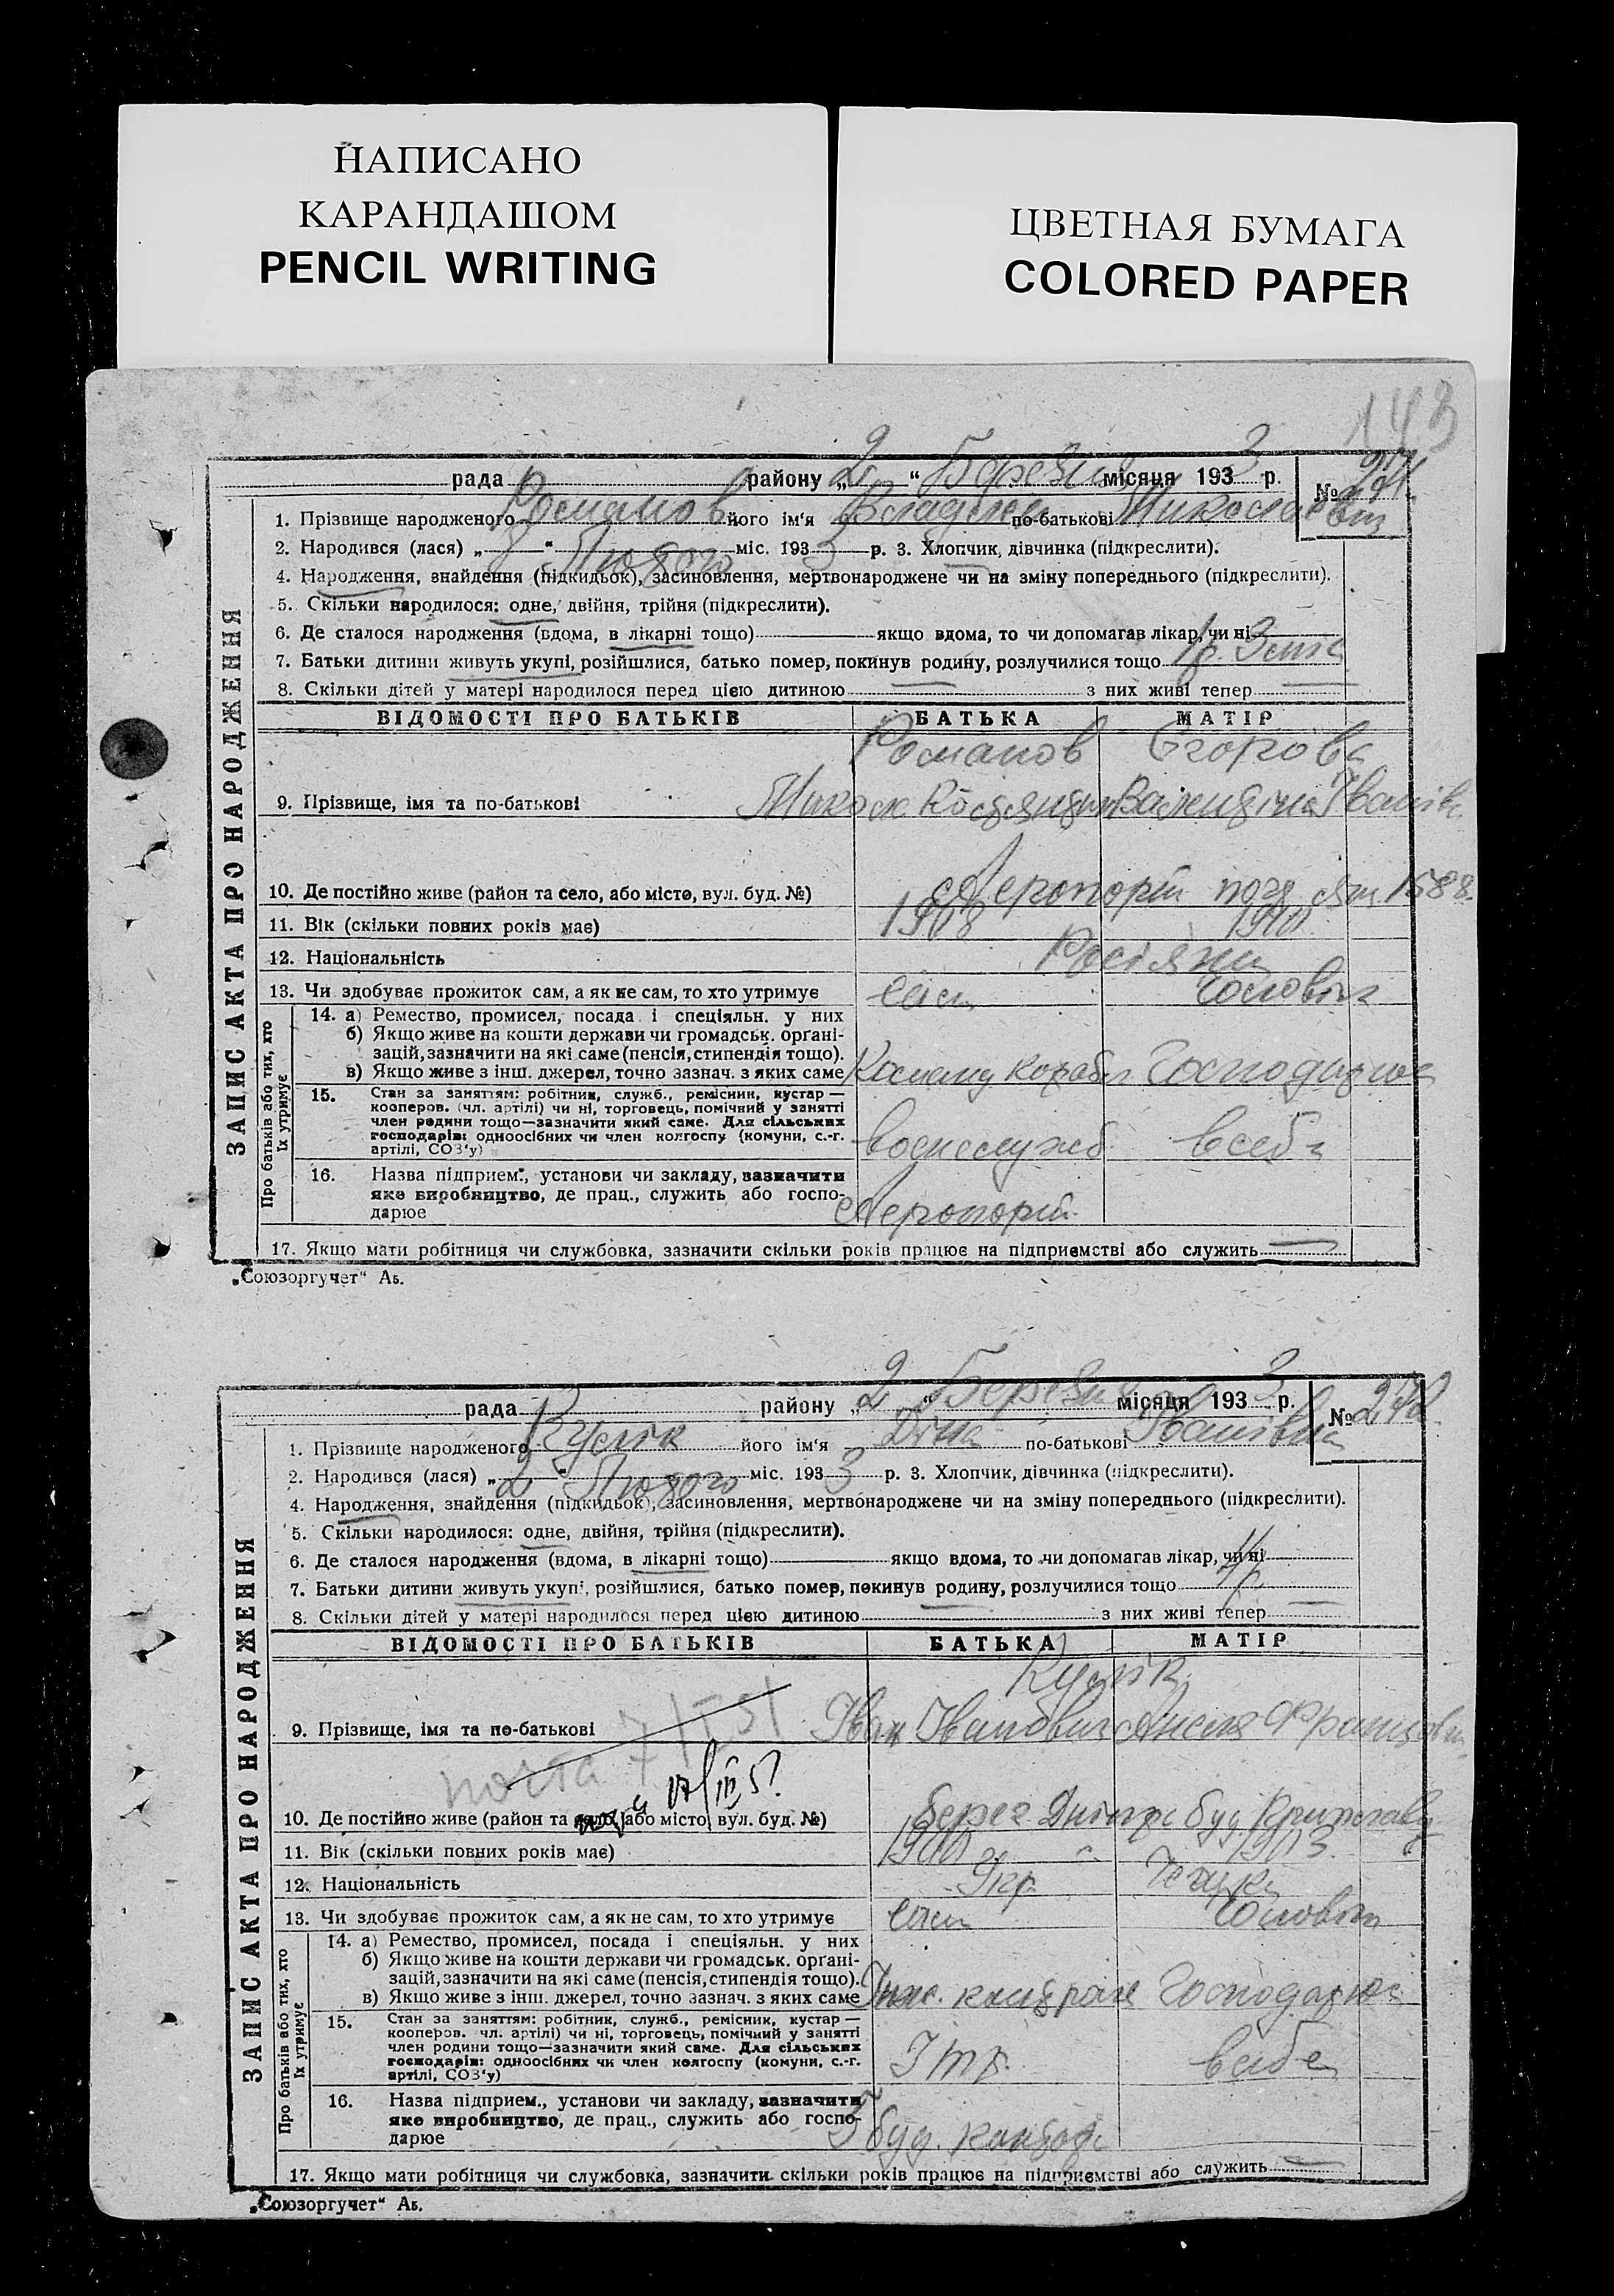 НАПИСАНО
КАРАНДАШОМ
PENCIL WRITING
ЦВЕТНАЯ БУМАГА
COLORED PAPER
143
рада району „2“ Березня місяця 1933 р. №
1. Прізвище народженого Романов його ім‘я Владлен по-батькові Миколаєвич
2. Народився (лася) „8“ Лютого міс. 1933 р. 3. Хлопчик, дівчинка (підкреслити).
4. Народження, знайдення (підкидьок), засиновлення, мертвонароджене чи на зміну попереднього (підкреслити).
5. Скільки народилося: одне, двійня, трійня (підкреслити).
6. Де сталося народження (вдома, в лікарні тощо) якщо вдома, то чи допомагав лікар, чи ні
7. Батьки дитини живуть укупі, розійшлися, батько помер, покинув родину, розлучилися тощо 1р.
8. Скільки дітей у матері народилося перед цією дитиною — з них живі тепер —
ЗАПИС АКТА ПРО НАРОДЖЕННЯ
ВІДОМОСТІ ПРО БАТЬКІВ БАТЬКА МАТІР
Романов Єгорова
9. Прізвище, імя та по-батькові Микола Костянтин Валентіна Іванівн
10. Де постійно живе (район та село, або місто, вул. буд. №) Аеропорт 1588.
11. Вік (скільки повних років має) 1908 1910
12. Національність Росіяни
13. Чи здобуває прожиток сам, а як не сам, то хто утримує сам Чоловік
Про батьків або тих, хто їх утримує
14. а) Ремество, промисел, посада і спеціяльн. у них
б) Якщо живе на кошти держави чи громадськ. орґані-
зацій, зазначити на які саме (пенсія, стипендія тощо).
в) Якщо живе з інш. джерел, точно зазнач. з яких саме Команд корабл Господарює
15. Стан за заняттям: робітник, служб., ремісник, кустар—
кооперов. (чл. артілі) чи ні, торговець, помічний у занятті
член родини тощо—зазначити який саме. Для сільських
господарів: одноосібних чи член колгоспу (комуни, с.-г.
артілі, СОЗ‘у) воєнслужб в себе
16. Назва підприєм., установи чи закладу, зазначити
яке виробництво, де прац., служить або госпо-
дарює Аеропорт.
17. Якщо мати робітниця чи службовка, зазначити скільки років працює на підприємстві або служить —
„Союзоргучет“ Аь.
рада району „2“ Березня місяця 1933 р. № 272.
1. Прізвище народженого Кулік його ім‘я Діна по-батькові Іванівна
2. Народився (лася) „2“ Лютого міс. 1933 р. 3. Хлопчик, дівчинка (підкреслити).
4. Народження, знайдення (підкидьок), засиновлення, мертвонароджене чи на зміну попереднього (підкреслити).
5. Скільки народилося: одне, двійня, трійня (підкреслити).
6. Де сталося народження (вдома, в лікарні тощо) якщо вдома, то чи допомагав лікар, чи ні
7. Батьки дитини живуть укупі, розійшлися, батько помер, покинув родину, розлучилися тощо
8. Скільки дітей у матері народилося перед цією дитиною — з них живі тепер —
ЗАПИС АКТА ПРО НАРОДЖЕННЯ
ВІДОМОСТІ ПРО БАТЬКІВ БАТЬКА МАТІР
Кулік
9. Прізвище, імя та по-батькові Іван Іванович Анеля Францовн
10. Де постійно живе (район та село, або місто, вул. буд. №) берег Дніпра буд
11. Вік (скільки повних років має) 1900 1903
12. Національність Укр. Чешка
13. Чи здобуває прожиток сам, а як не сам, то хто утримує сам Чоловік
Про батьків або тих, хто їх утримує
14. а) Ремество, промисел, посада і спеціяльн. у них
б) Якщо живе на кошти держави чи громадськ. орґані-
зацій, зазначити на які саме (пенсія, стипендія тощо).
в) Якщо живе з інш. джерел, точно зазнач. з яких саме Інж. Господарює
15. Стан за заняттям: робітник, служб., ремісник, кустар—
кооперов. чл. артілі) чи ні, торговець, помічний у занятті
член родини тощо—зазначити який саме. Для сільських
господарів: одноосібних чи член колгоспу (комуни, с.-г.
артілі, СОЗ‘у) Ітр. в себе
16. Назва підприєм., установи чи закладу, зазначити
яке виробництво, де прац., служить або госпо-
дарює буд. контора
17. Якщо мати робітниця чи службовка, зазначити скільки років працює на підприємстві або служить —
„Союзоргучет“ Аь.